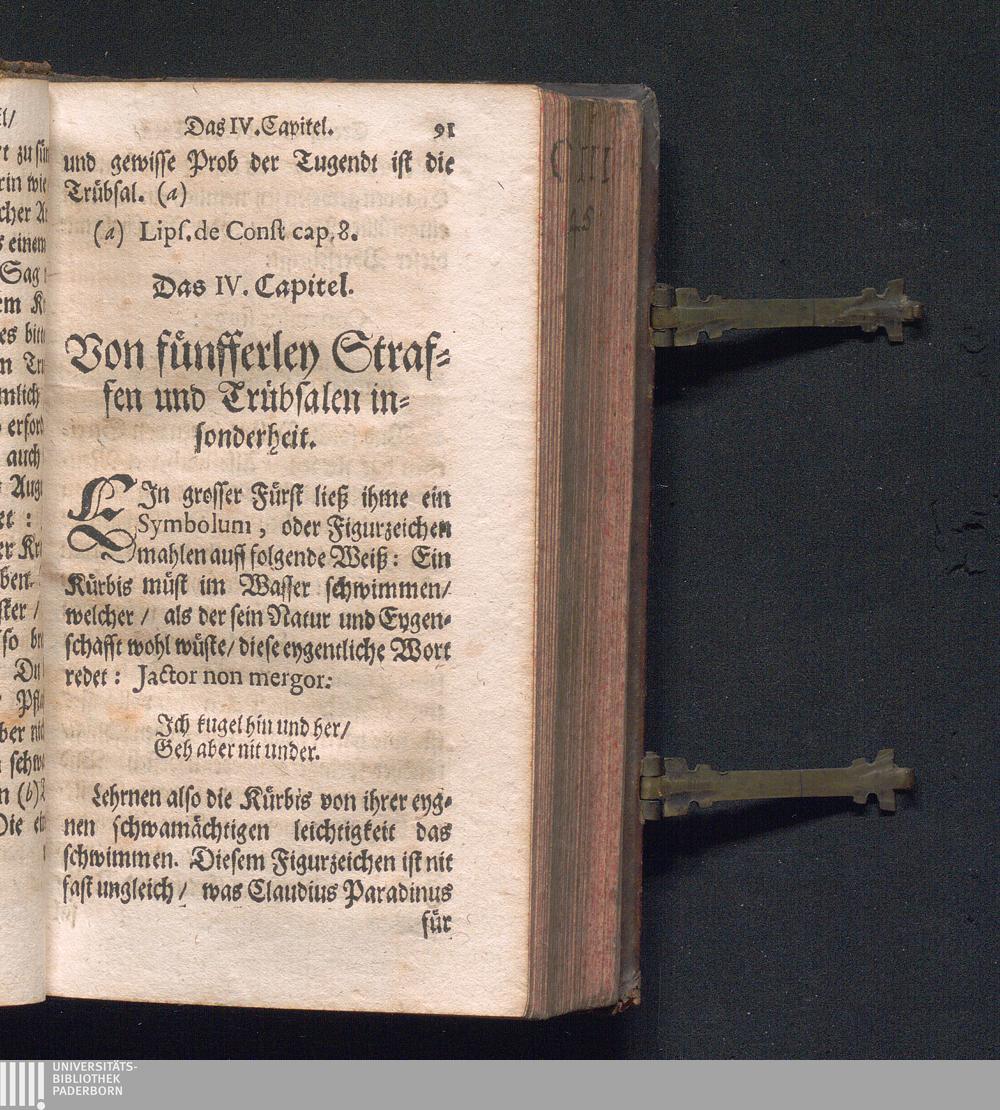 Das IV. Capitel. 91
und gewisse Prob der Tugendt ist die
Trübsal. (a)
(a) Lipſ. de Conſt cap. 8.
Das IV. Capitel.
Von fünfferley Straf-
fen und Trübsalen in-
sonderheit.
EIn grosser Fürst ließ ihme ein
Symbolum, oder Figurzeichen
mahlen auff folgende Weiß: Ein
Kürbis müst im Wasser schwimmen/
welcher / als der sein Natur und Eygen-
schafft wohl wüste/ diese eygentliche Wort
redet: Jactor non mergor:
Ich kugel hin und her/
Geh aber nit under.
Lehrnen also die Kürbis von ihrer eyg-
nen schwamächtigen leichtigkeit das
schwimmen. Diesem Figurzeichen ist nit
fast ungleich / was Claudius Paradinus
für
C III
UNIVERSITÄTS-
BIBLIOTHEK
PADERBORN